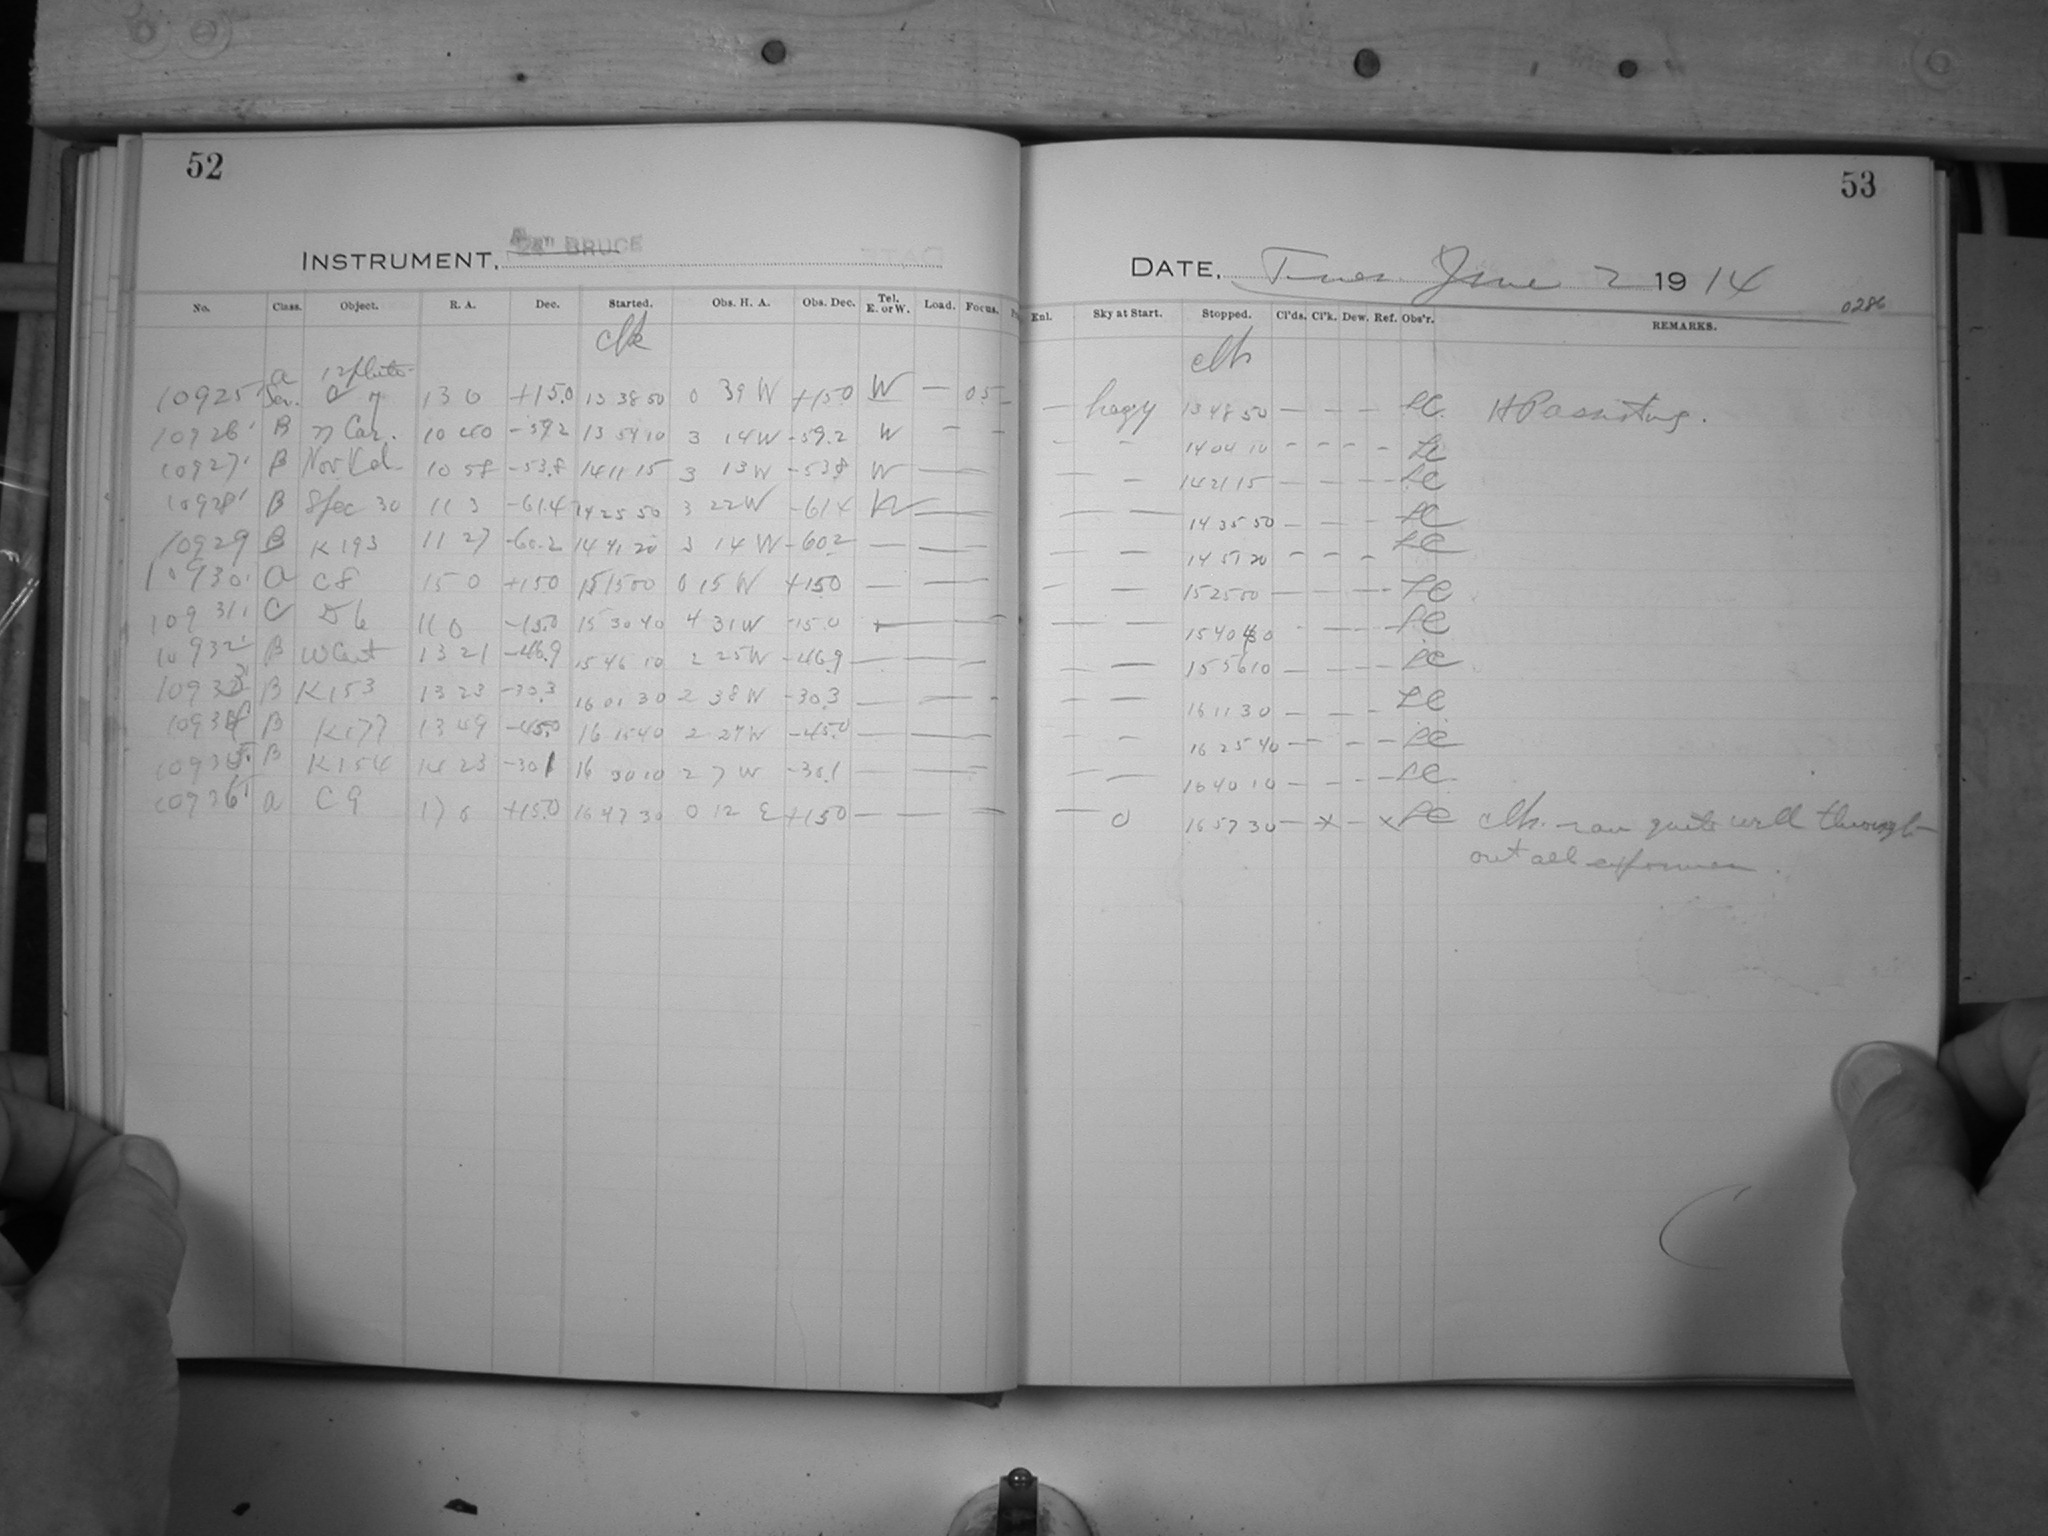 52
INSTRUMENT, 24" BRUCE
No. Class. Object. R. A. Dec. Started. Obs. H. A. Obs. Dec. Tel. E. or W. Load. Focus.
clk
a 12 plates
10925 Ser. 13 0 +15.0 13 38 50 0 39 W +15.0 W — 05
10926 B η Car. 10 40 -59.2 13 54 10 3 14 W -59.2 W - -
10927 B Nov Vel 10 58 -53.8 14 11 15 3 13 W -53.8 W —
10928 B Spec 30 11 3 -61.4 14 25 50 3 22 W -61.4 W —
10929 B K 193 11 27 -60.2 14 41 20 3 14 W -60.2 — —
10930 a C8 15 0 +15.0 15 15 00 0 15 W +15.0 — —
10931 C D6 11 0 -15.0 15 30 40 4 31 W -15.0 — —
10932 B ω Cent 13 21 -46.9 15 46 10 2 25 W -46.9 — — —
10933 B K153 13 23 -30.3 16 01 30 2 38 W -30.3 — — -
10934 B K177 13 49 -45.0 16 15 40 2 27 W -45.0 — — —
10935 B K154 14 23 -30.1 16 30 10 2 7 W -30.1 — — —
10936 a C9 17 0 +15.0 16 47 30 0 12 E +15.0 — — —
53
DATE, Tues June 2 1914
0286
Enl. Sky at Start. Stopped. Cl'ds. Cl'k. Dew. Ref. Obs'r. REMARKS.
clk
— hazy 13 48 50 — — — LC. HP assisting.
— - 14 04 10 - - - - LC
— - 14 21 15 — — — LC
— — 14 35 50 — — — LC
— — 14 51 20 - - - LC
— — 15 25 00 — — — - LC
— — 15 40 40 - — — LC
— — 15 56 10 — — — LC
— — 16 11 30 — — - LC
- - 16 25 40 — - - LC
— — 16 40 10 — — — LC
— 0 16 57 30 — x — x LC clk. ran quite well through-
out all exposures.